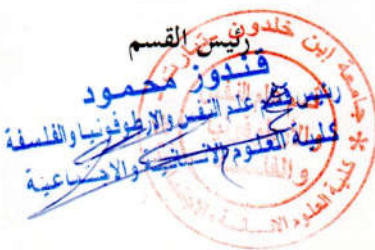 رئيس القسم
قندوز محمود
رئيس قسم علم النفس والارطوفونيا والفلسفة
كلية العلوم الانسانية والاجتماعية
جامعة ابن خلدون تيارت
كلية العلوم الانسانية و الاجتماعية